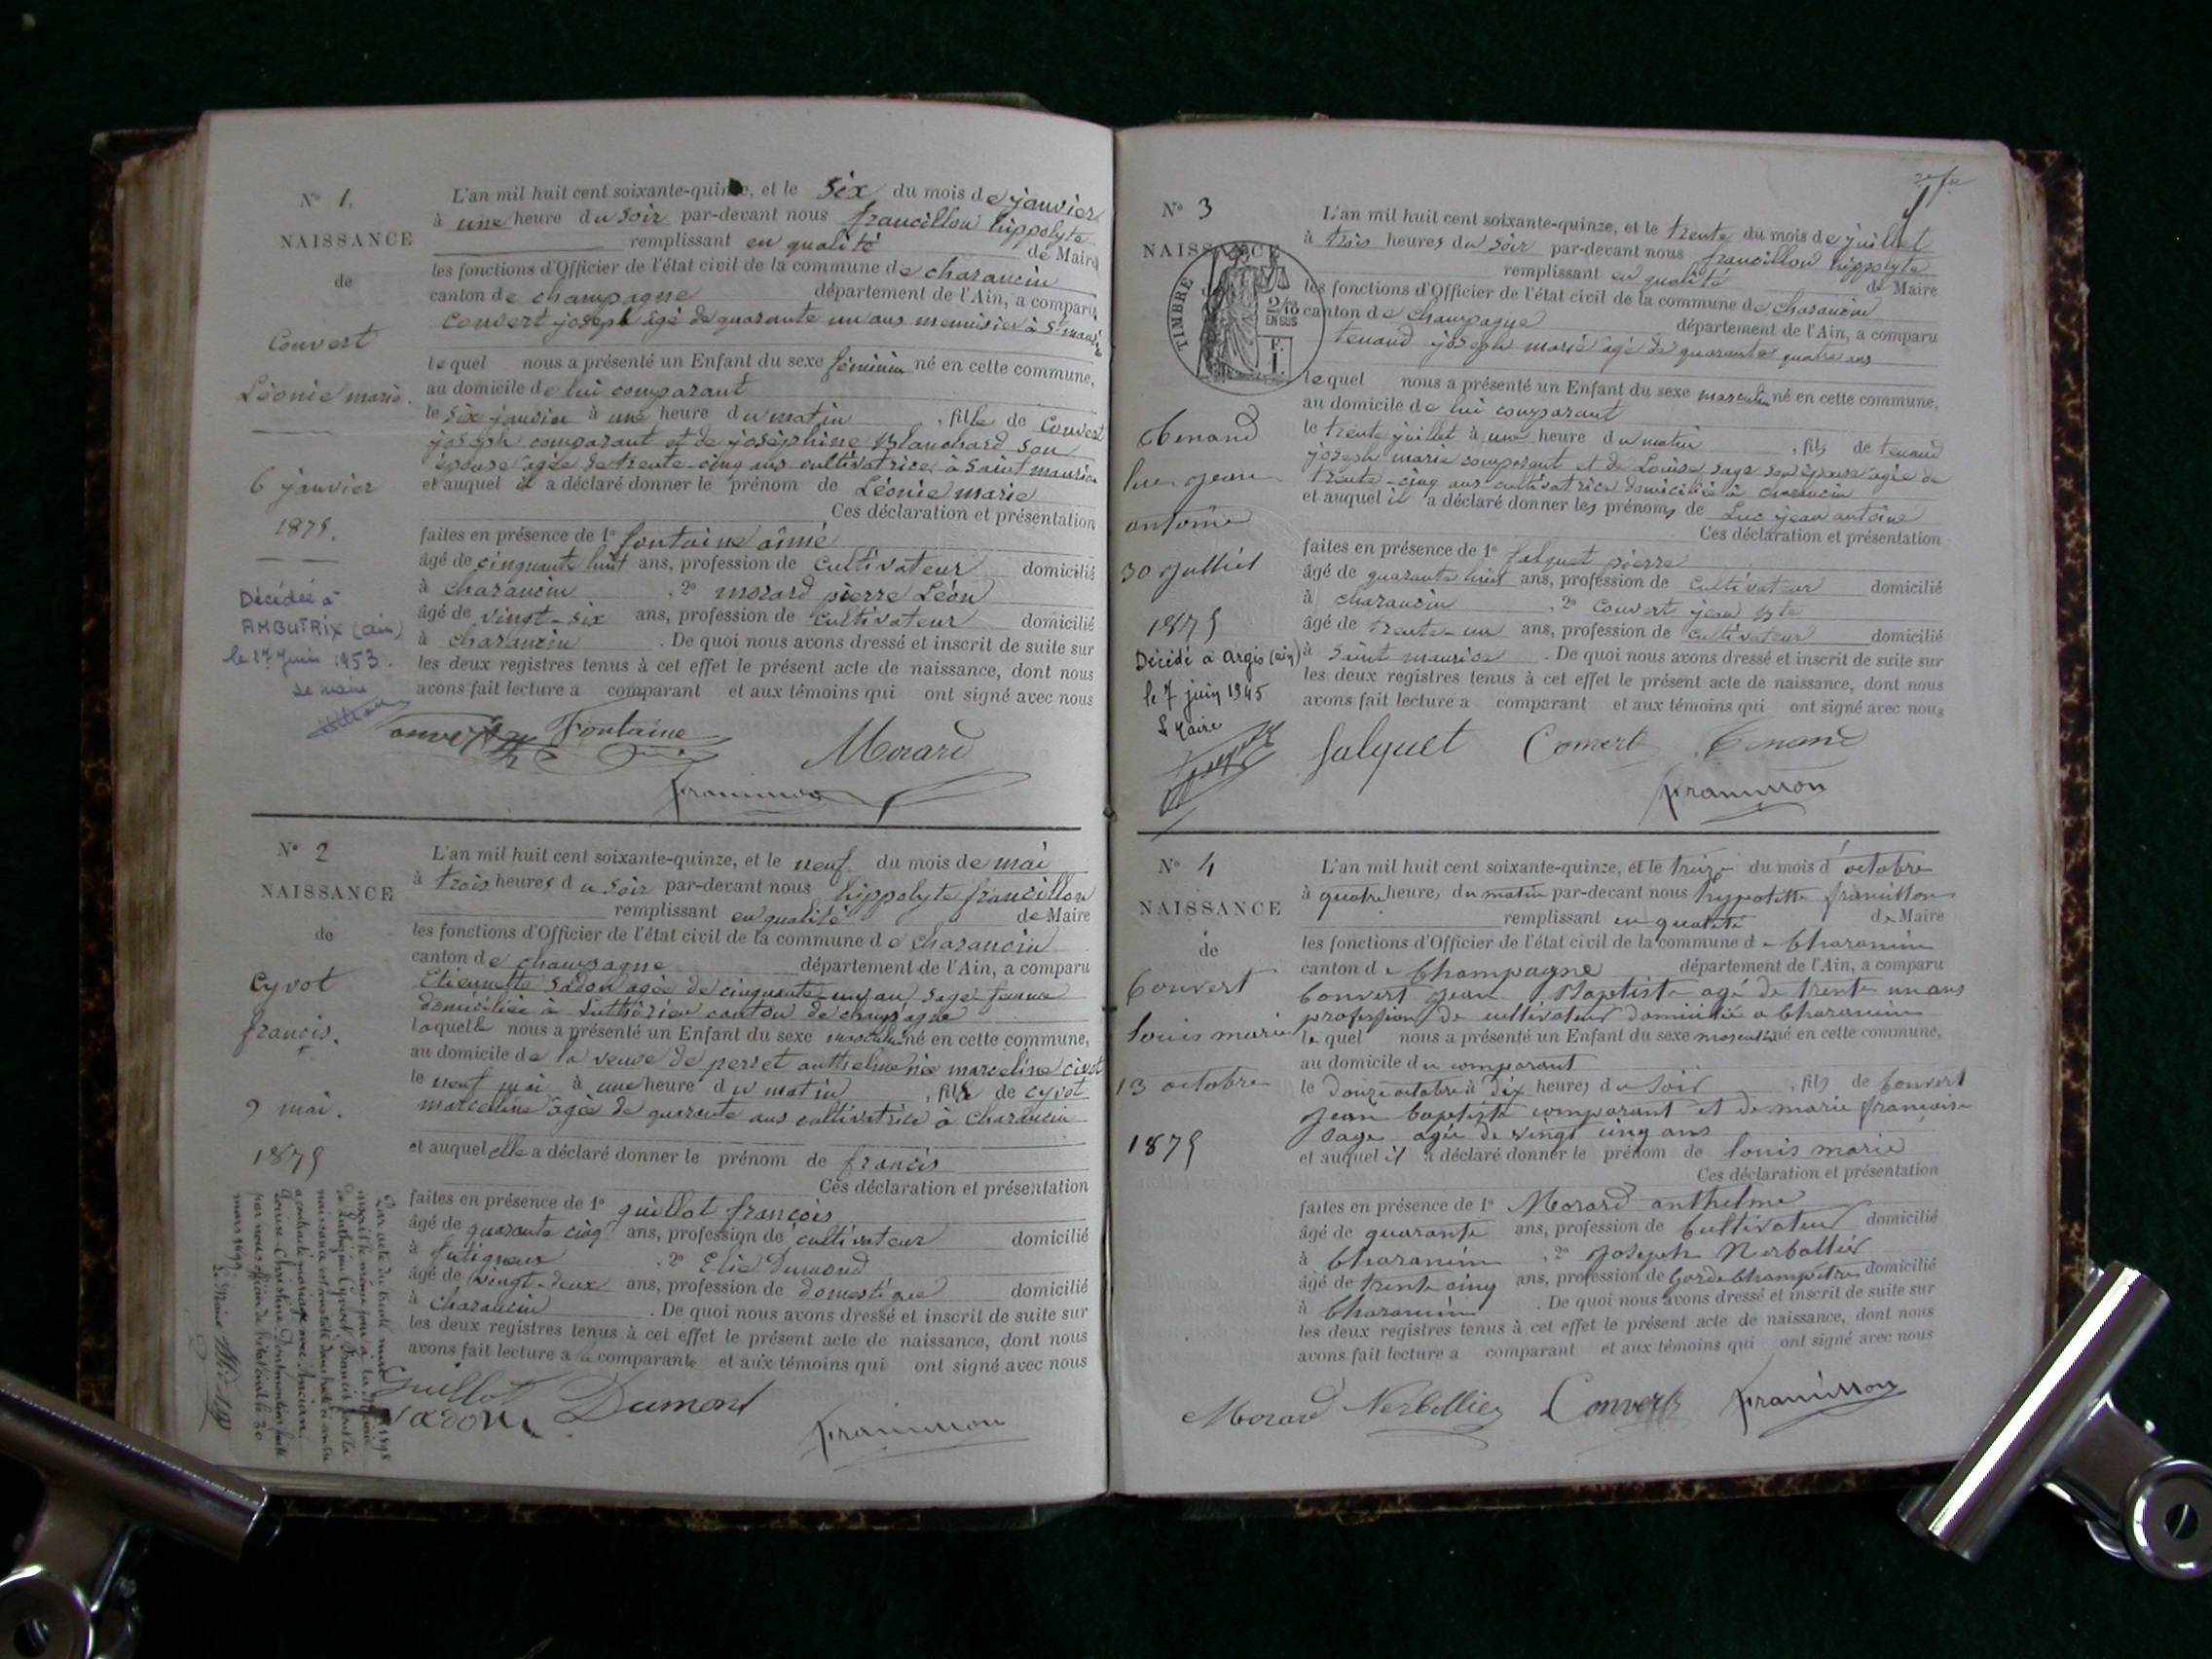 N° 1,
NAISSANCE
de
Convert
Léonie marie.
6 janvier
1875.
Décédée à
AMBUTRIX (ain)
le 27 Juin 1953.
Le maire
L'an mil huit cent soixante-quinze, et le six du mois de janvier
à une heure du soir par-devant nous francillon hippolyte
remplissant en qualité de Maire
les fonctions d'Officier de l'état civil de la commune de charancin
canton de champagne département de l'Ain, a comparu
Convert joseph âgé de quarante un ans menuisier à St-maurice
lequel nous a présenté un Enfant du sexe féminin né en cette commune,
au domicile de lui comparant
le six janvier à une heure du matin, fille de Convert
joseph comparant et de joséphine Blanchard son
épouse agée de trente-cinq ans cultivatrice à saint maurice
et auquel il a déclaré donner le prénom de Léonie marie
Ces déclaration et présentation
faites en présence de 1° fontaine aimé
âgé de cinquante huit ans, profession de cultivateur domicilié
à charancin, 2° morard pierre Léon
âgé de vingt-six ans, profession de cultivateur domicilié
à charancin. De quoi nous avons dressé et inscrit de suite sur
les deux registres tenus à cet effet le présent acte de naissance, dont nous
avons fait lecture a comparant et aux témoins qui ont signé avec nous
Convert Fontaine Morard
francillon
N° 2
NAISSANCE
de
Cyvot
francis.
9 mai.
1875
L'an mil huit cent soixante-quinze, et le neuf du mois de mai
à trois heures du soir par-devant nous hippolyte francillon
remplissant en qualité de Maire
les fonctions d'Officier de l'état civil de la commune de charancin
canton de champagne département de l'Ain, a comparu
Etiennette Sadon agée de cinquante-un ans sage femme
domiciliée à Luthézieu canton de champagne
laquelle nous a présenté un Enfant du sexe masculin né en cette commune,
au domicile de la veuve de perret anthelme née marceline civot
le neuf mai à une heure du matin, fils de cyvot
marceline agée de quarante ans cultivatrice à charancin
et auquel elle a déclaré donner le prénom de francis
Ces déclaration et présentation
faites en présence de 1° guillot françois
âgé de quarante cinq ans, profession de cultivateur domicilié
à 2° Elie Dumond
âgé de vingt-deux ans, profession de domestique domicilié
à charancin. De quoi nous avons dressé et inscrit de suite sur
les deux registres tenus à cet effet le présent acte de naissance, dont nous
avons fait lecture a la comparante et aux témoins qui ont signé avec nous
Guillot
Sadon Dumont francillon
N° 3
NAISSANCE
TIMBRE
2/10
EN SUS
F.
1.
Tenand
luc jean
antoine
30 juillet
1875
Décédé à Argis (ain)
le 7 juin 1945
Le Maire
L'an mil huit cent soixante-quinze, et le trente du mois de juillet
à trois heures du soir par-devant nous francillon hippolyte
remplissant en qualité de Maire
les fonctions d'Officier de l'état civil de la commune de charancin
canton de champagne département de l'Ain, a comparu
tenand joseph marie agé de quarante quatre ans
lequel nous a présenté un Enfant du sexe masculin né en cette commune,
au domicile de lui comparant
le trente juillet à une heure du matin, fils de tenand
joseph marie comparant et de Louise sage son épouse agée de
trente-cinq ans cultivatrice domiciliée à charancin
et auquel il a déclaré donner les prénoms de Luc jean antoine
Ces déclaration et présentation
faites en présence de 1° falquet pierre
âgé de quarante huit ans, profession de cultivateur domicilié
à charancin, 2° Convert jean Bte
âgé de trente-un ans, profession de cultivateur domicilié
à Saint maurice. De quoi nous avons dressé et inscrit de suite sur
les deux registres tenus à cet effet le présent acte de naissance, dont nous
avons fait lecture a comparant et aux témoins qui ont signé avec nous
falquet Convert Tenand
francillon
N° 4
NAISSANCE
de
Convert
louis marie
13 octobre
1875
L'an mil huit cent soixante-quinze, et le treize du mois d'octobre
à quatre heures du matin par-devant nous hypolitte francillon
remplissant en qualité de Maire
les fonctions d'Officier de l'état civil de la commune de Charancin
canton de Champagne département de l'Ain, a comparu
Convert Jean Baptiste agé de trente un ans
profession de cultivateur domicilié a Charancin
lequel nous a présenté un Enfant du sexe masculin né en cette commune,
au domicile du comparant
le douze octobre à dix heures du soir, fils de Convert
Jean baptiste comparant et de marie françoise
sage agée de vingt cinq ans
et auquel il a déclaré donner le prénom de louis marie
Ces déclaration et présentation
faites en présence de 1° Morard anthelme
âgé de quarante ans, profession de Cultivateur domicilié
à Charancin, 2° Joseph Nerbollier
âgé de trente cinq ans, profession de Garde Champêtre domicilié
à Charancin. De quoi nous avons dressé et inscrit de suite sur
les deux registres tenus à cet effet le présent acte de naissance, dont nous
avons fait lecture a comparant et aux témoins qui ont signé avec nous
Morard Nerbollier Convert francillon